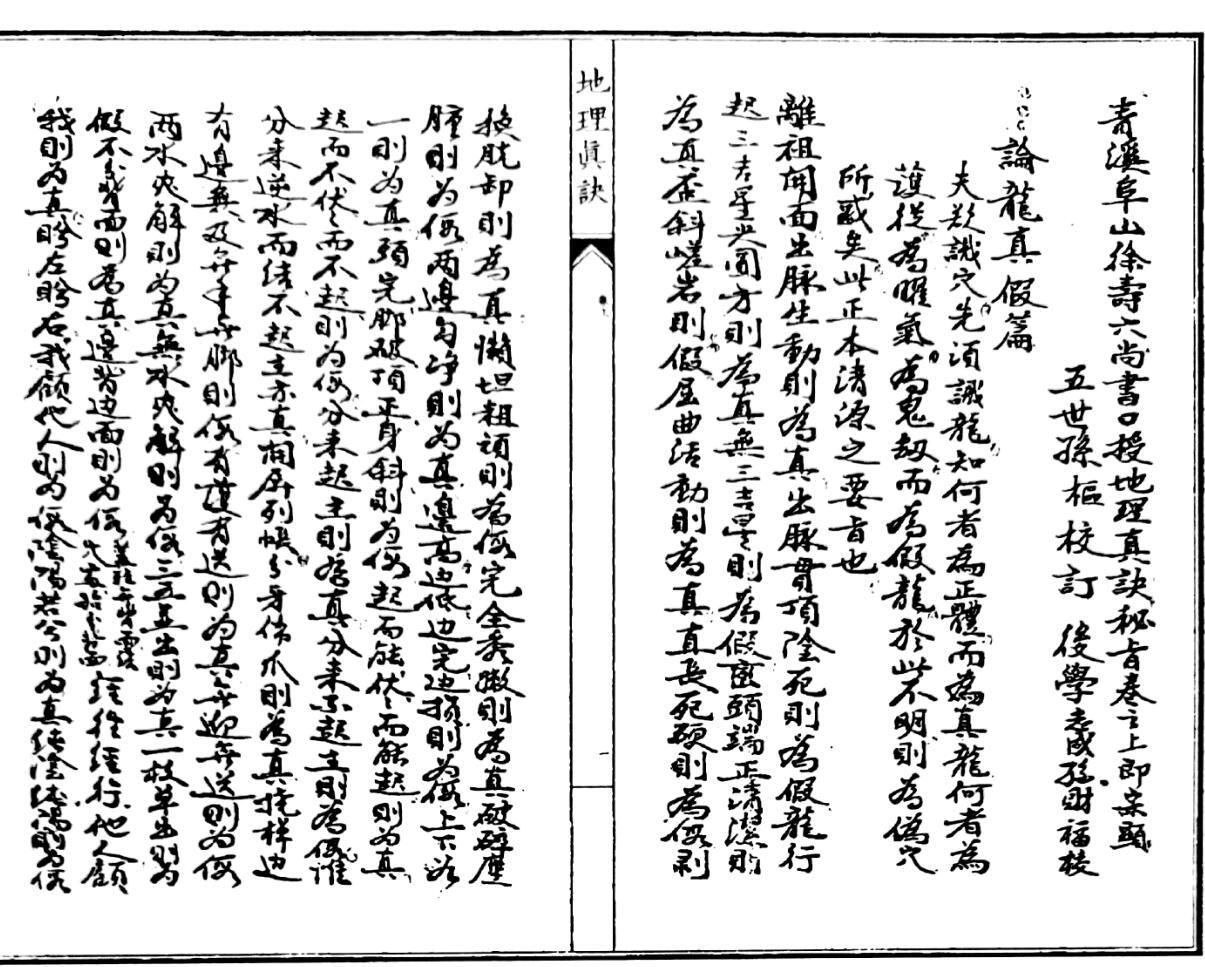 青溪阜山徐壽六尚書口授地理真訣秘旨卷之上即宗頭
五世孫樞校訂 後學孫財福梭
論龍真假篇
夫欲識穴先須識龍知何者為正體而為真龍何者為
護從為曜氣為鬼刼而為假龍於此不明則為偽穴
所惑矣此正本清源之要旨也
離祖開面出脉生動則為真出脉貫頂陰死則為假龍行
起三吉星尖圓方則為真無三吉星則為假巒頭端正清潔則
為真歪斜嵯岩則假屈曲活動則為真直長死硬則為假剥
地理眞訣
換脱卸則為真懶坦粗頑則為假完全秀嫩則為真破碎
腫則為假两邉勻净則為真邉高边低边完边損則為假上下
一則為真頭完脚破頂正身斜則為假起而能伏伏而能起則為真
起而不伏伏而不起則為假分来起主則為真分来不起主則為假惟
分来逆水而结不起主亦真開屏列帳分牙佈爪則為真边
有邉無及無手無脚則假有護有送則為真無迎無送則為假
两水夾觧則為真無水夾觧則為假三五並出則為真一枝草出則为
假不背面則為真邉背边面則为假 経行他人顧
我則为真盼左盼右我顧他人則为假陰陽若分則为真純陰純陽則为假